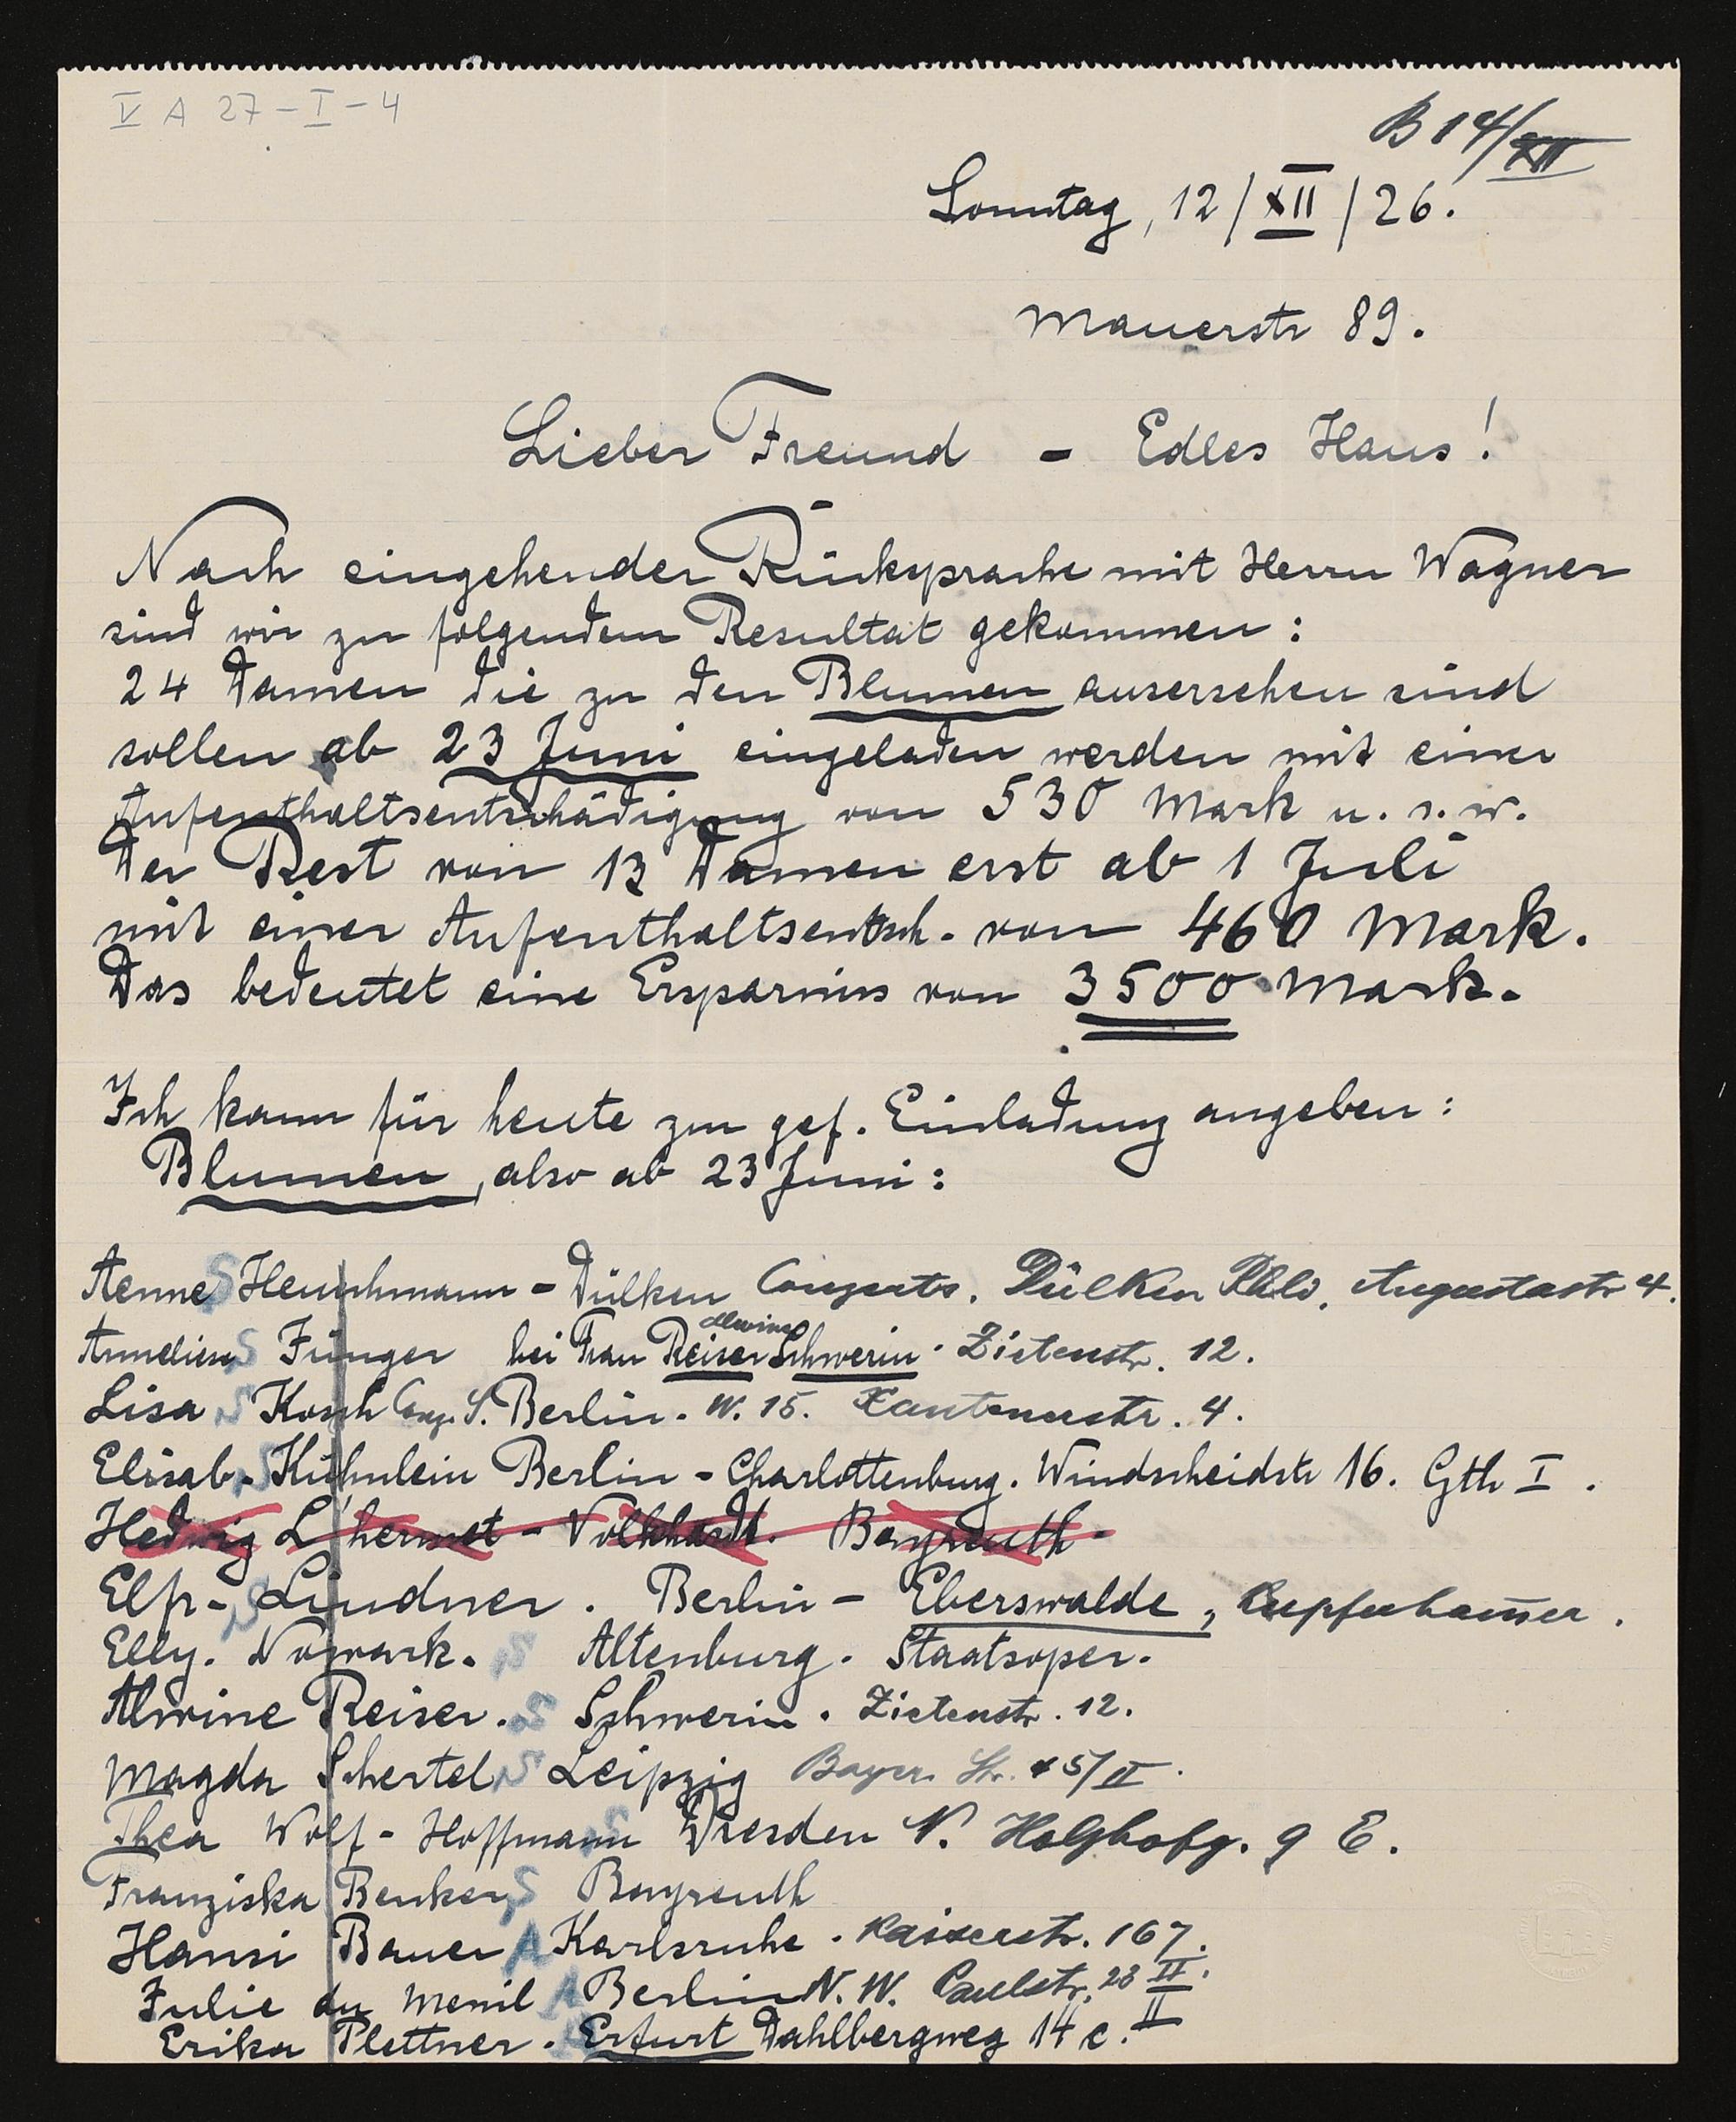 V A 27-I-4
B 14/XII
Sonntag, 12/XII/26.
Mauerstr 89.
Lieber Freund - Edles Haus!
Nach eingehender Rücksprache mit Herrn Wagner
sind wir zu folgendem Resultat gekommen:
24 Damen die zu den Blumen ausersehen sind
sollen ab 23 Juni eingeladen werden mit einer
Aufenthaltsentschädigung von 530 Mark u. s. w.
Der Rest von 13 Damen erst ab 1 Juli
mit einer Aufenthaltsentsch. von 460 Mark.
Das bedeutet eine Ersparnis von 3500 Mark.
Ich kann für heute zur gef. Einladung angeben:
Blumen, also ab 23 Juni:
Aenne S Henschmann - Dülken Conzerts. Dülken Rhld. Augustastr 4.
Anneliese S Fünger bei Frau Alwine Reiser Schwerin. Zietenstr. 12.
Lisa S Kosch Conz. S. Berlin. W. 15. Xantenerstr. 4.
Elisab. S Kühnlein Berlin - Charlottenburg. Windscheidstr 16. Gth I.
Hedwig L'hermet - Volkhardt. Bayreuth -
Elfr. S Lindner. Berlin - Eberswalde, Kupferhammer.
Elly. Nowark. S Altenburg. Staatsoper.
Alwine Reiser. S Schwerin. Zietenstr. 12.
Magda Schertel S Leipzig Bayer. Str. 45/II.
Thea Wolf - Hoffmann S Dresden N. Holzhofg. 9 E.
Franziska Benker S Bayreuth
Hansi Bauer A Karlsruhe. Kaiserstr. 167.
Julie du Menil A Berlin N. W. Paulstr. 28 II.
Erika Plettner. A Erfurt Dahlbergweg 14 c. II